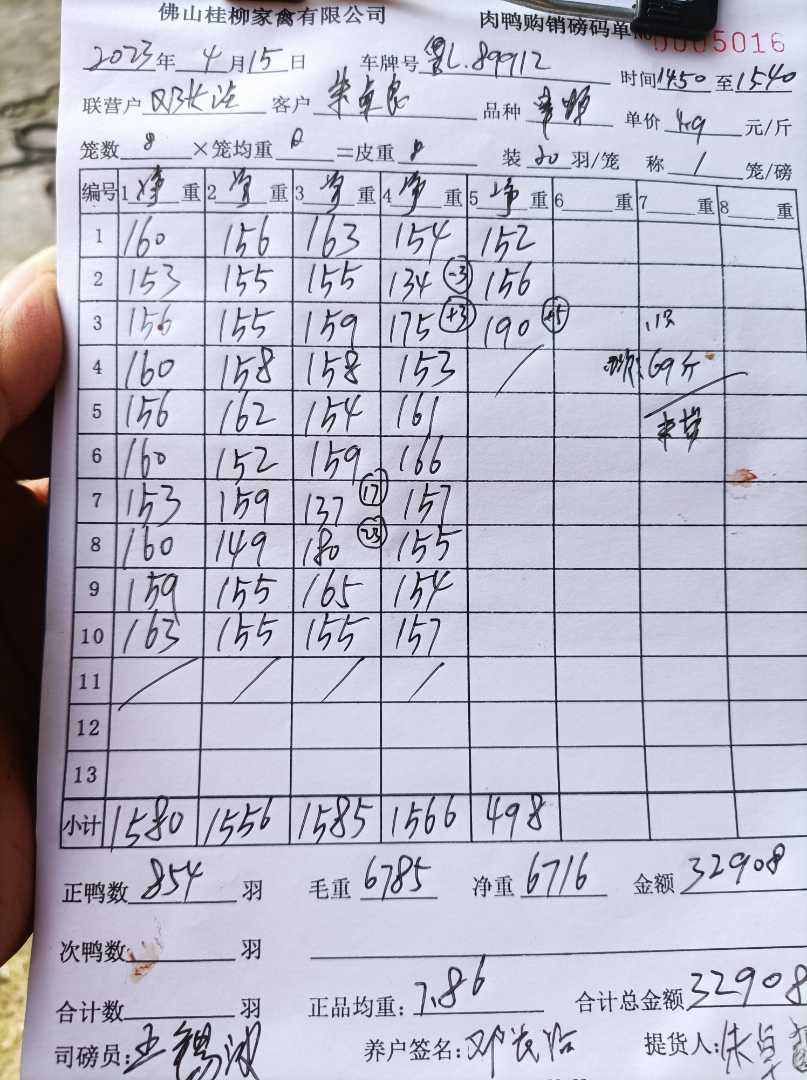 佛山桂柳家禽有限公司 肉鸭购销磅码单 No 0005016
2023年 4月15日 车牌号 粤L.89912 时间1450至1540
联营户 邓长洽 客户 朱卓良 品种 单价 4.9 元/斤
笼数 8 ×笼均重 0 =皮重 0 装 20 羽/笼 称 1 笼/磅
编号 1净重 2净重 3净重 4净重 5净重 6重 7重 8重
1 160 156 163 154 152
2 153 155 155 134 -3 156
3 156 155 159 175 +3 190 +5
4 160 158 158 153 / 69斤
5 156 162 154 161
6 160 152 159 166
7 153 159 137 17 157
8 160 149 180 23 155
9 159 155 165 154
10 163 155 155 157
11 / / / /
12
13
小计 1580 1556 1585 1566 498
正鸭数 854 羽 毛重 6785 净重 6716 金额 32908
次鸭数 羽
合计数 羽 正品均重: 7.86 合计总金额 32908
司磅员: 王锡 养户签名: 邓长洽 提货人: 朱卓